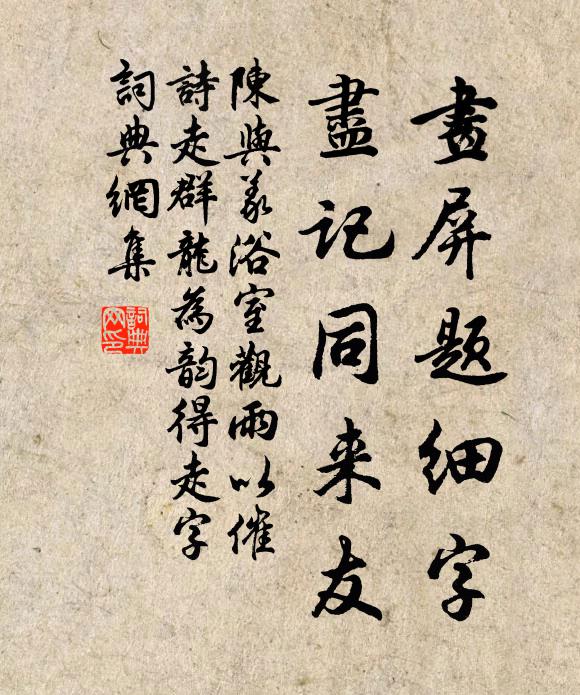 畫屏題细字
盡记同来友
陳與義浴室觀雨以催
詩走群龍為韵得走字
詞典網集
詞典
网印